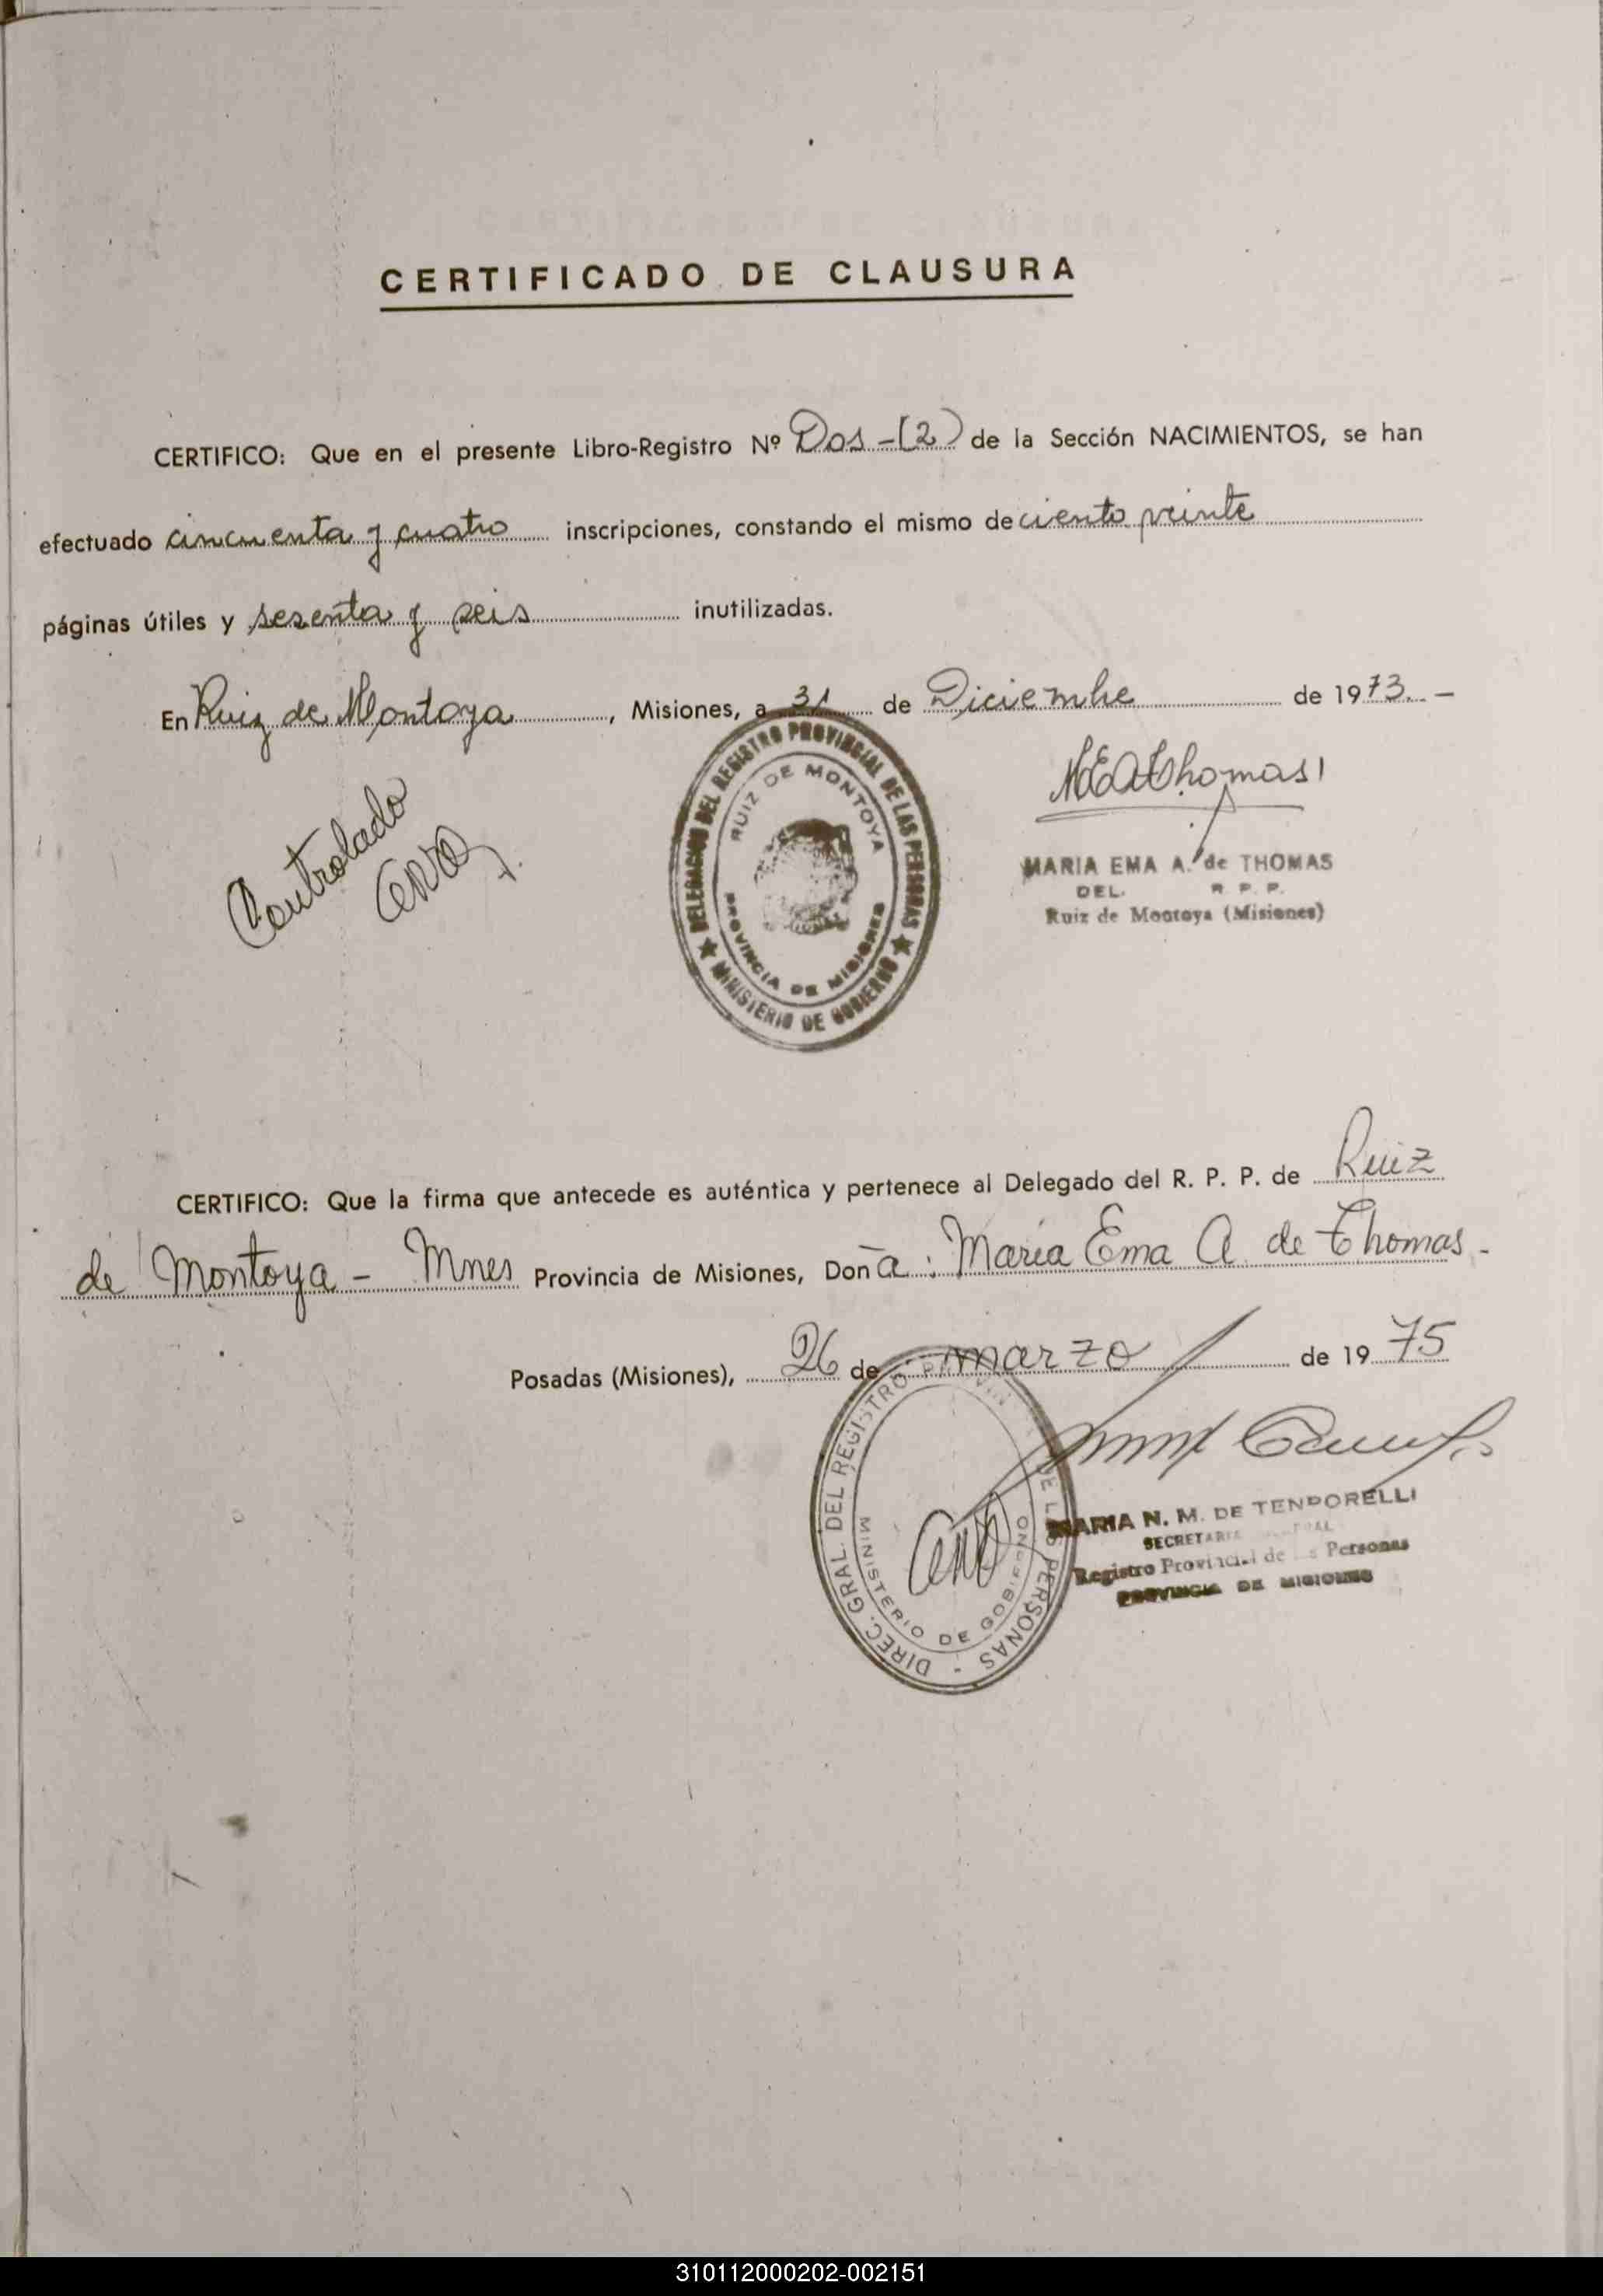 CERTIFICADO DE CLAUSURA
CERTIFICO: Que en el presente Libro-Registro Nº Dos - (2) de la Sección NACIMIENTOS, se han
efectuado cincuenta y cuatro inscripciones, constando el mismo de ciento veinte
páginas útiles y sesenta y seis inutilizadas.
En Ruiz de Montoya, Misiones, a 31 de Diciembre de 1973. -
Controlado
MEAThomas
DELEGACION DEL REGISTRO PROVINCIAL DE LAS PERSONAS
RUIZ DE MONTOYA
PROVINCIA DE MISIONES
MINISTERIO DE GOBIERNO
MARIA EMA A. de THOMAS
DEL. R. P. P.
Ruiz de Montoya (Misiones)
CERTIFICO: Que la firma que antecede es auténtica y pertenece al Delegado del R. P. P. de Ruiz
de Montoya - Mnes Provincia de Misiones, Doña: María Ema A de Thomas -
Posadas (Misiones), 26 de marzo de 1975
DIREC. GRAL. DEL REGISTRO DE LAS PERSONAS -
MINISTERIO DE GOBIERNO
MARIA N. M. DE TENDORELLI
SECRETARIA
Registro Provincial de Personas
PROVINCIA DE MISIONES
310112000202-002151